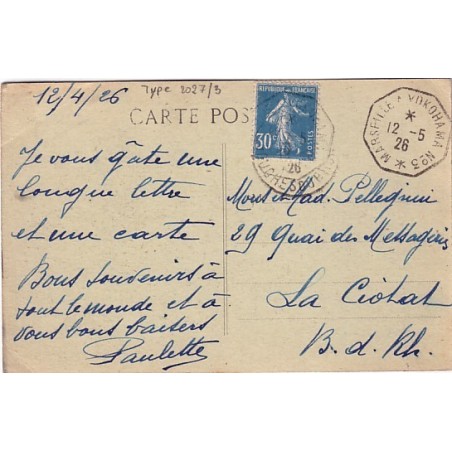 Type 2027/3
12/4/26
CARTE POS
RÉPUBLIQUE FRANÇAISE
30c
POSTES
26
MARSEILLE A YOKOHAMA N° 3
12-5
26
Je vous gâte une
longue lettre
et une carte
Bons souvenirs à
tout le monde et à
vous bons baisers
Paulette
Mons et Mad. Pellegrini
29 Quai des Messageries
La Ciotat
B. d. Rh.